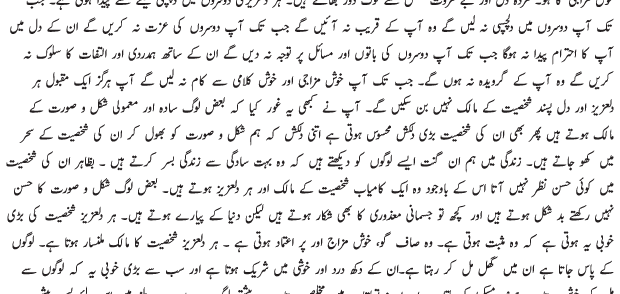 تک آپ دوسروں میں دلچسپی نہ لیں گے وہ آپ کے قریب نہ آئیں گے جب تک آپ دوسروں کی عزت نہ کریں گے ان کے دل میں
آپ کا احترام پیدا نہ ہوگا جب تک آپ دوسروں کی باتوں اور مسائل پر توجہ نہ دیں گے ان کے ساتھ ہمدردی اور التفات کا سلوک نہ
کریں گے وہ آپ کے گرویدہ نہ ہوں گے۔ جب تک آپ خوش مزاجی اور خوش کلامی سے کام نہ لیں گے آپ ہرگز ایک مقبول ہر
دلعزیز اور دل پسند شخصیت کے مالک نہیں بن سکیں گے۔ آپ نے کبھی یہ غور کیا کہ بعض لوگ سادہ اور معمولی شکل و صورت کے
مالک ہوتے ہیں پھر بھی ان کی شخصیت بڑی دلکش محسوس ہوتی ہے اتنی دلکش کہ ہم شکل و صورت کو بھول کر ان کی شخصیت کے سحر
میں کھو جاتے ہیں۔ زندگی میں ہم ان گنت ایسے لوگوں کو دیکھتے ہیں کہ وہ بہت سادگی سے زندگی بسر کرتے ہیں ۔ بظاہر ان کی شخصیت
میں کوئی حسن نظر نہیں آتا اس کے باوجود وہ ایک کامیاب شخصیت کے مالک اور ہر دلعزیز ہوتے ہیں۔ بعض لوگ شکل و صورت کا حسن
نہیں رکھتے بد شکل ہوتے ہیں اور کچھ تو جسمانی معذوری کا بھی شکار ہوتے ہیں لیکن دنیا کے پیارے ہوتے ہیں۔ ہر دلعزیز شخصیت کی بڑی
خوبی یہ ہوتی ہے کہ وہ مثبت ہوتی ہے۔ وہ صاف گو، خوش مزاج اور پر اعتماد ہوتی ہے ۔ ہر دلعزیز شخصیت کا مالک ملنسار ہوتا ہے۔ لوگوں
کے پاس جاتا ہے ان میں گھل مل کر رہتا ہے۔ان کے دکھ درد اور خوشی میں شریک ہوتا ہے اور سب سے بڑی خوبی یہ کہ لوگوں سے